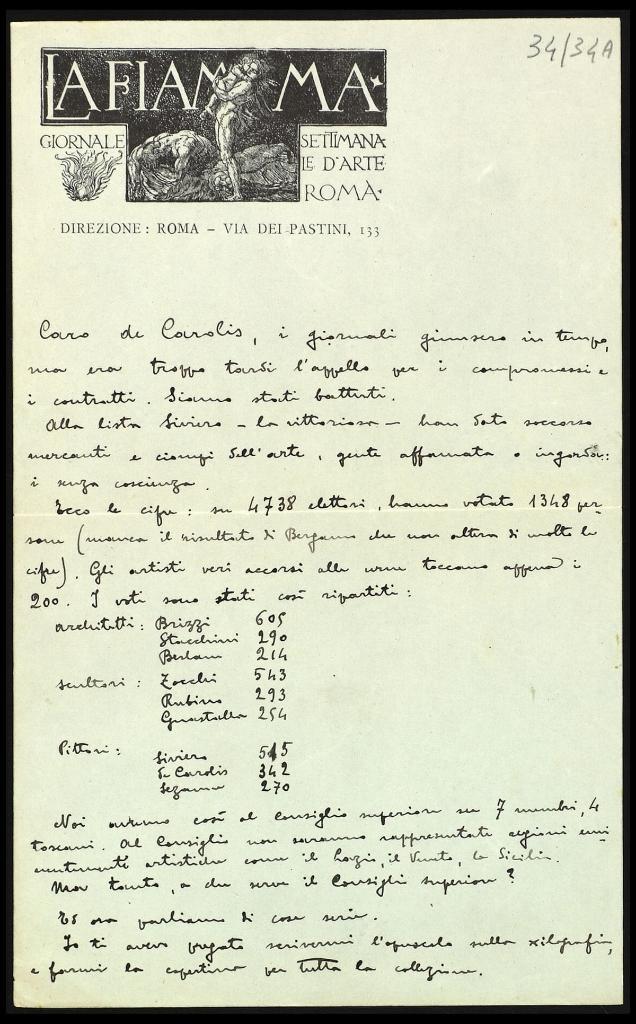 34/34A
LA FIAMMA
GIORNALE SETTIMANA
LE D'ARTE
ROMA
DIREZIONE: ROMA – VIA DEI PASTINI, 133
Caro de Carolis, i giornali giunsero in tempo,
ma era troppo tardi l'appello per i compromessi e
i contratti. Siamo stati battuti.
Alla lista Siviero – la vittoriosa – han dato soccorso
mercanti e ciompi dell'arte, gente affamata o ingorda:
i senza coscienza.
Ecco le cifre: su 4738 elettori, hanno votato 1348 per-
sone (manca il risultato di Bergamo che non altera di molto le
cifre). Gli artisti veri accorsi alle urne toccano appena i
200. I voti sono stati così ripartiti:
architetti: Brizzi 605
Stacchini 290
Berlam 214
scultori: Zocchi 543
Rubino 293
Guastalla 254
Pittori: Siviero 515
de Carolis 342
Sezanne 270
Noi avremo così al Consiglio superiore su 7 membri, 4
toscani. Al Consiglio non saranno rappresentate regioni emi
nentemente artistiche come il Lazio, il Veneto, la Sicilia.
Ma tanto, a che serve il Consiglio superiore?
Ed ora parliamo di cose serie.
Io ti avevo pregato scrivermi l'opuscolo sulla xilografia,
e farmi la copertina per tutta la collezione.